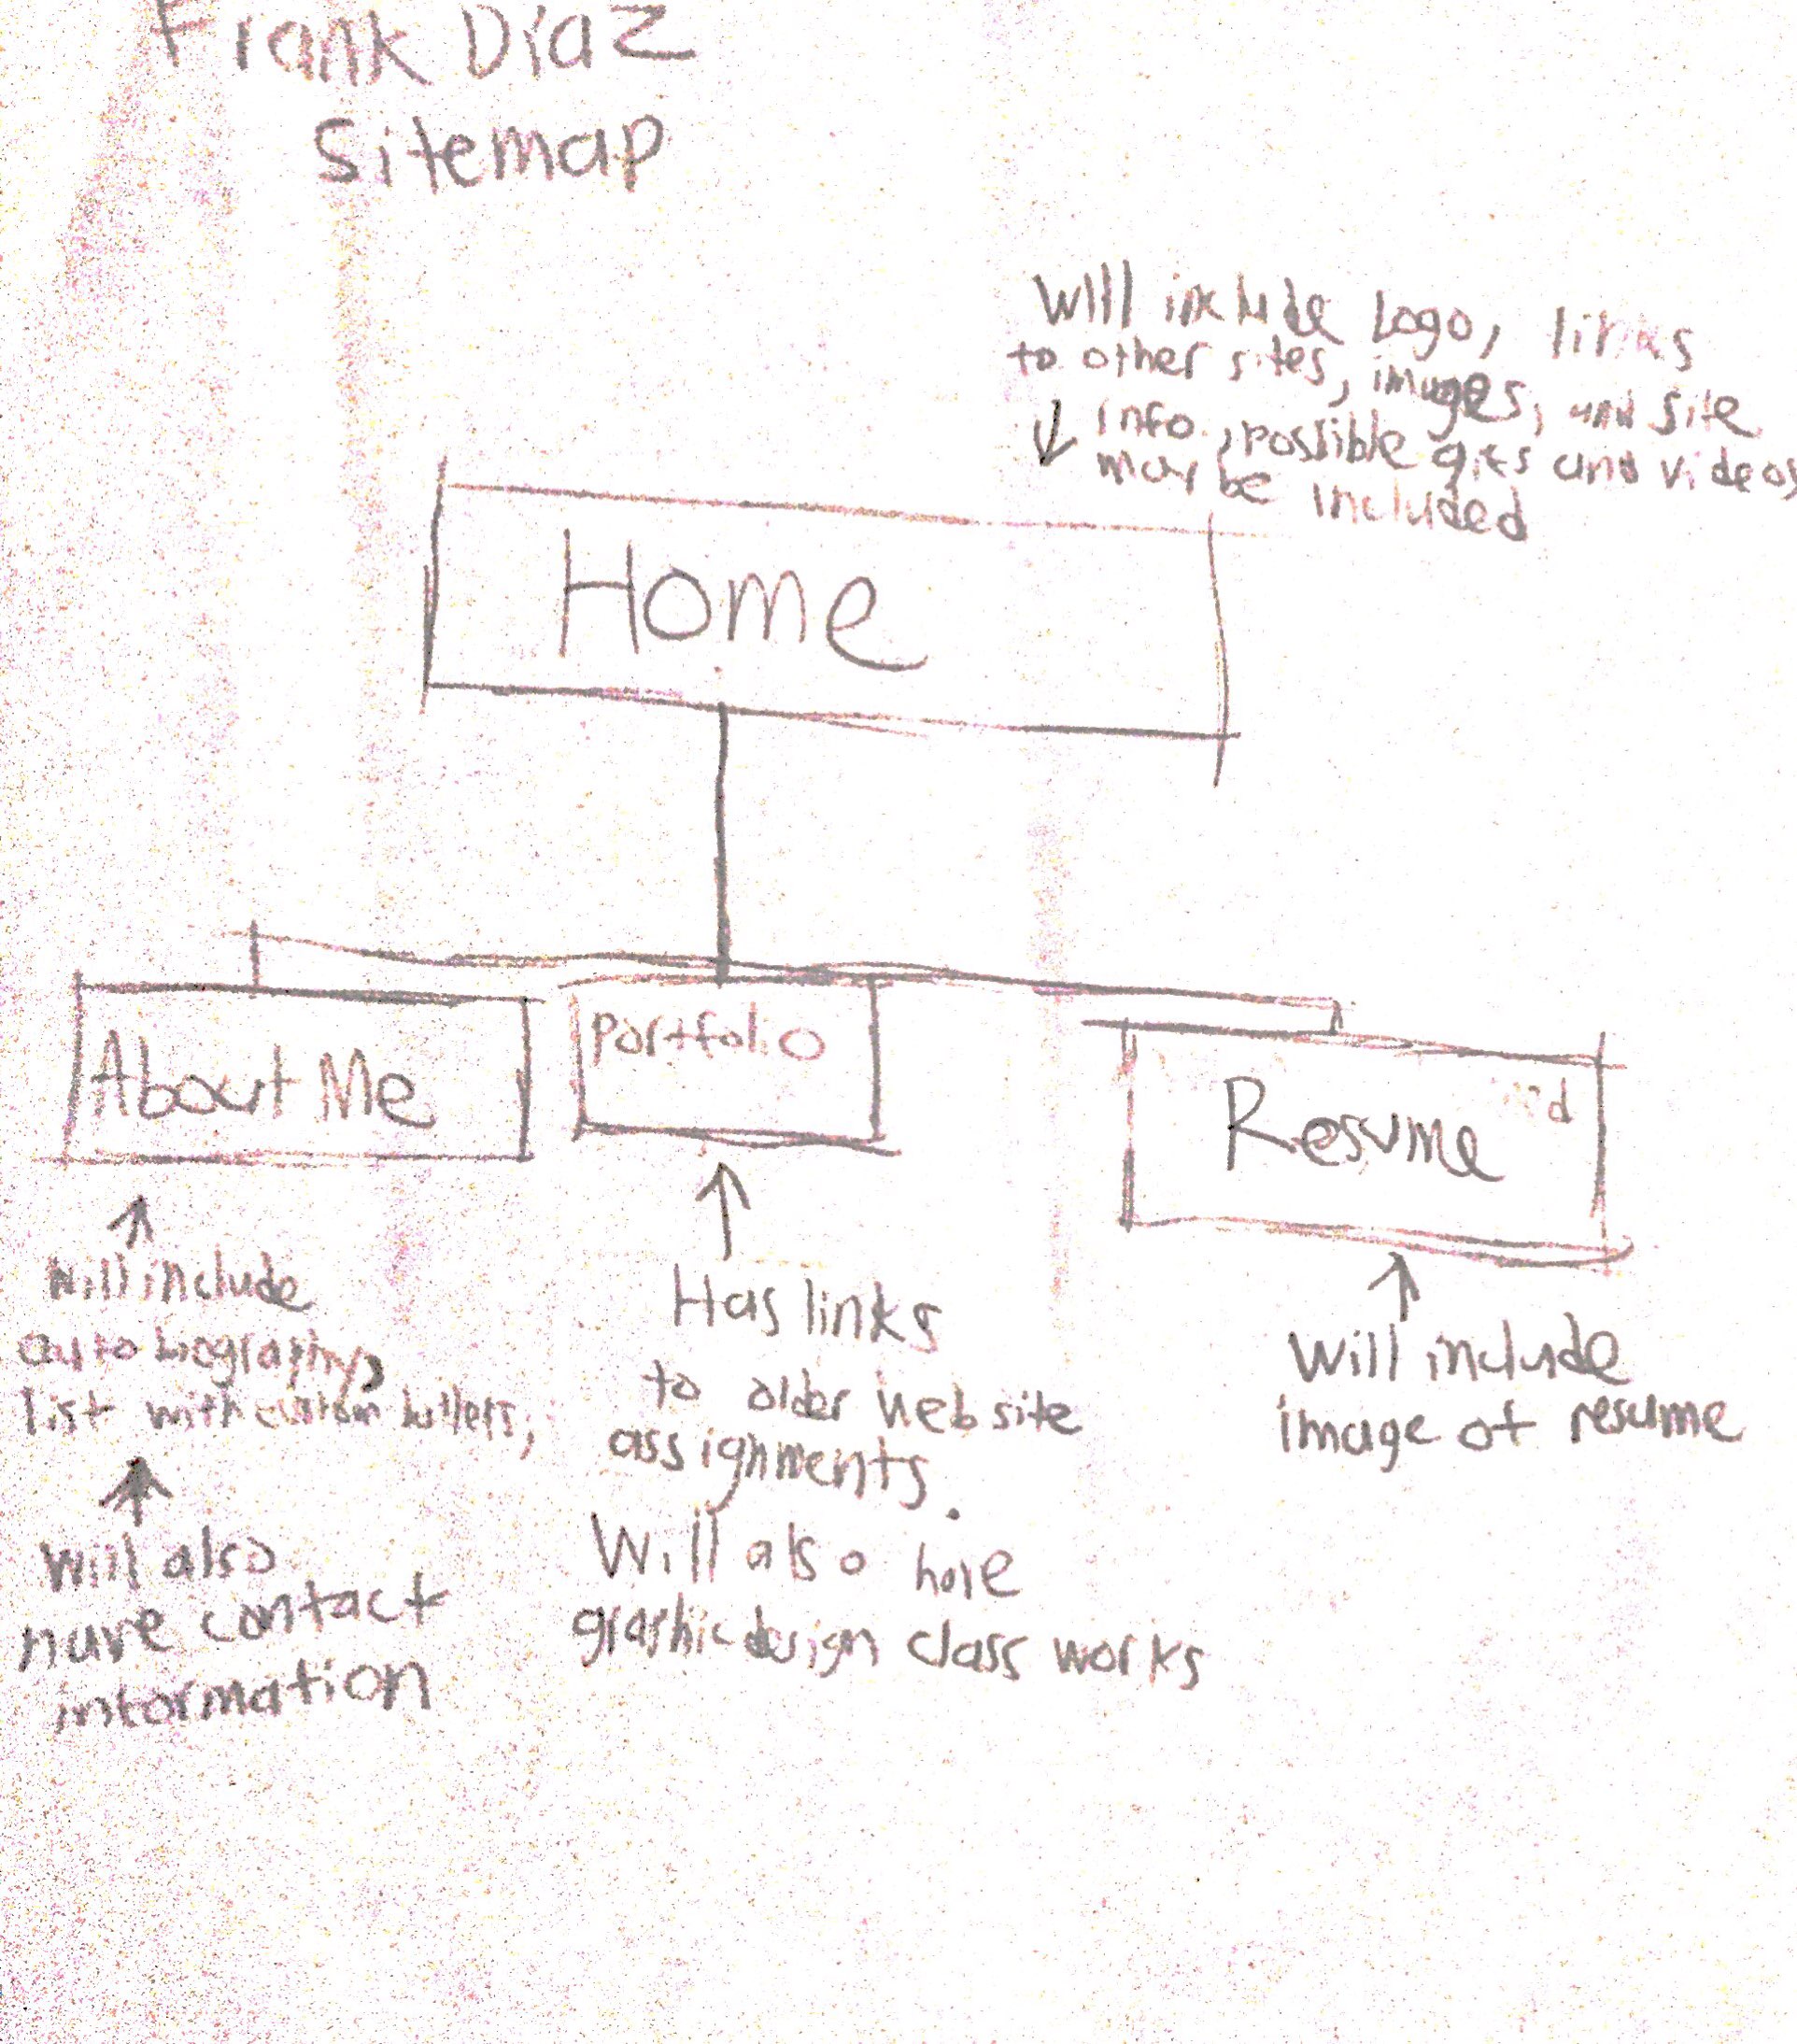 Frank Diaz
Sitemap
Will include Logo, links
to other sites, images, and site
info, possible gifs and videos
may be included
Home
About Me
Portfolio
Resume
Will include
autobiography,
list with custom bullets,
Will also
have contact
information
Has links
to older website
assignments.
Will also have
graphic design class works
Will include
image of resume